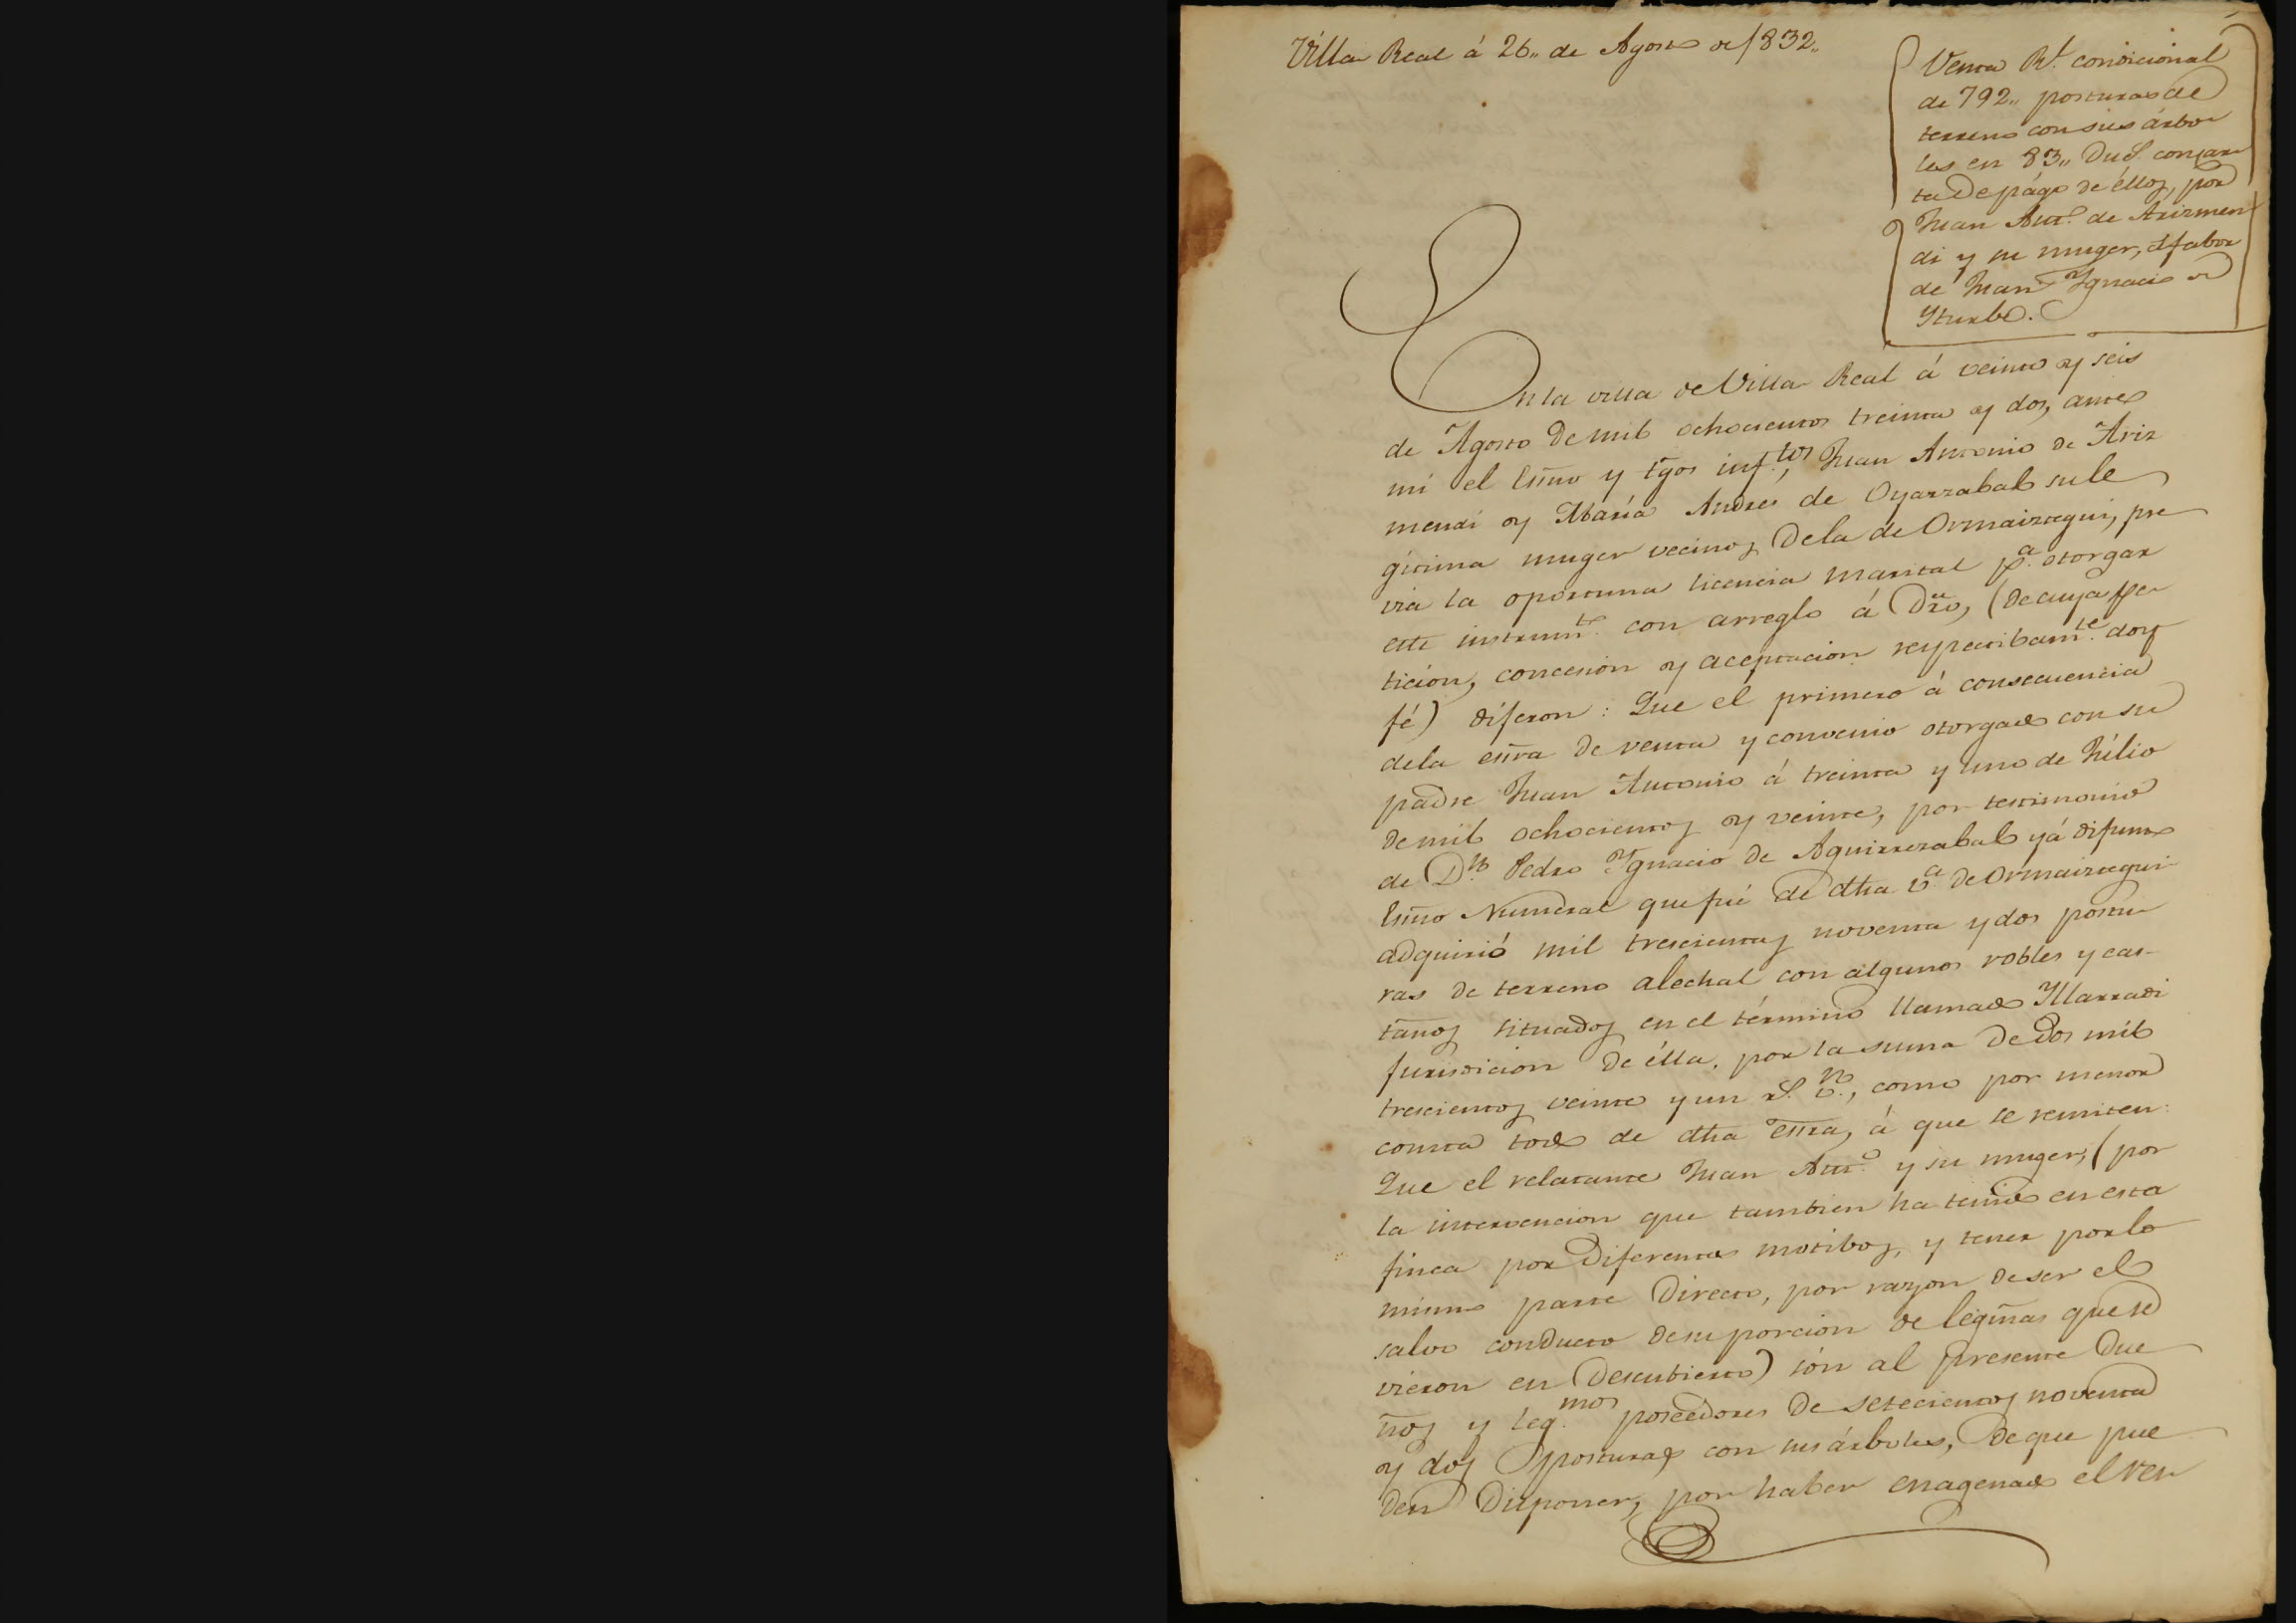 Villa Real á 26,, de Agosto de 1832,,
Venta Rl. condicional
de 792,, posturas de
terreno con sus árbo
les en 83,, Dus. con car
ta de págo de éllos, por
Juan Anto. de Arizmen
di y su muger, á fabor
de Juan Ygnacio de
Yturbe.
En la villa de Villa Real á veinte y seis
de Agosto de mil ochocientos treinta y dos, antes
mi el Essno y tgos inftos. Juan Antonio de Ariz
mendi y María Andres de Oyarzabal su le
gitima muger vecinos de la de Ormaiztegui, pre
via la oportuna licencia marital pa. otorgar
este instrumto. con arreglo á Dro, (de cuya pe
ticion, concesion y aceptacion respectibamte. doy
fé) dijeron: Que el primero á consecuencia
de la essra de venta y convenio otorgado con su
padre Juan Antonio á treinta y uno de Júlio
de mil ochocientos y veinte, por testimonio
de Dn. Pedro Ygnacio de Aguirrezabal yá difunto
Essno Numeral que fué de dha va. de Ormaiztegui
adquirió mil trescientas noventa y dos postu
ras de terreno alechal con algunos robles y cas-
taños situados en el término llamado Yllarradi
jurisdicion de élla, por la suma de dos mil
trescientos veinte y un rs. vn., como por menor
consta todo de dha essra, á que se remiten:
Que el relatante Juan Anto. y su muger, (por
la intervencion que tambien ha tenido en esta
finca por diferentes motibos, y tener por lo
mismo parte directo, por razon de ser el
salvo conducto de su porcion de legmas que se
vieron en descubierto) són al presente due
ños y legmos. poseedores de setecientos noventa
y dos posturas con sus árboles, de que pue
den disponer, por haber enagenado el ven